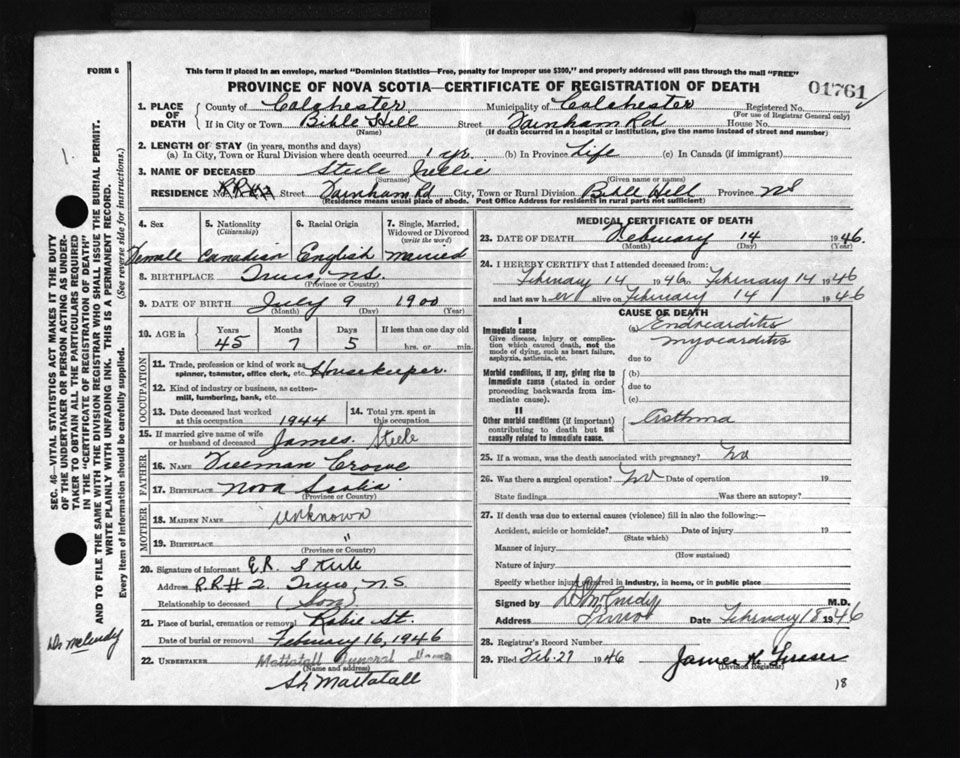 FORM 6
This form if placed in an envelope, marked "Dominion Statistics—Free, penalty for improper use $300," and properly addressed will pass through the mail "FREE"
PROVINCE OF NOVA SCOTIA—CERTIFICATE OF REGISTRATION OF DEATH
01761
1. PLACE OF DEATH
County of Colchester Municipality of Colchester Registered No.
(For use of Registrar General only)
If in City or Town Bible Hill Street Farnham Rd House No.
(Name) (If death occurred in a hospital or institution, give the name instead of street and number)
2. LENGTH OF STAY (in years, months and days)
(a) In City, Town or Rural Division where death occurred 1 yr. (b) In Province Life (c) In Canada (if immigrant)
3. NAME OF DECEASED Steele Nellie
(Surname) (Given name or names)
RESIDENCE No. Street Farnham Rd City, Town or Rural Division Bible Hill Province NS
(Residence means usual place of abode. Post Office Address for residents in rural parts not sufficient)
4. Sex 5. Nationality (Citizenship) 6. Racial Origin 7. Single, Married, Widowed or Divorced (write the word)
Female Canadian English Married
8. BIRTHPLACE Truro, N.S.
(Province or Country)
9. DATE OF BIRTH July 9 1900
(Month) (Day) (Year)
10. AGE in Years Months Days If less than one day old
45 7 5 hrs. or min.
OCCUPATION
11. Trade, profession or kind of work as spinner, teamster, office clerk, etc. Housekeeper.
12. Kind of industry or business, as cotton-mill, lumbering, bank, etc.
13. Date deceased last worked at this occupation 1944 14. Total yrs. spent in this occupation
15. If married give name of wife or husband of deceased James Steele
FATHER
16. NAME Freeman Crowe
17. BIRTHPLACE Nova Scotia
(Province or Country)
MOTHER
18. MAIDEN NAME unknown
19. BIRTHPLACE "
(Province or Country)
20. Signature of informant E.R. Steele
Address R.R.# 2. Truro N.S.
Relationship to deceased (Son)
21. Place of burial, cremation or removal Robie St.
Date of burial or removal February 16, 1946
22. UNDERTAKER Mattatall Funeral Home
(Name and address)
Mattatall
MEDICAL CERTIFICATE OF DEATH
23. DATE OF DEATH February 14 1946.
(Month) (Day) (Year)
24. I HEREBY CERTIFY that I attended deceased from:
February 14 1946 to February 14 1946
and last saw her alive on February 14 1946
CAUSE OF DEATH
I
Immediate cause
Give disease, injury or complication which caused death, not the mode of dying, such as heart failure, asphyxia, asthenia, etc.
(a) Endocarditis
myocarditis
due to
Morbid conditions, if any, giving rise to immediate cause (stated in order proceeding backwards from immediate cause)
(b)
due to
(c)
II
Other morbid conditions (if important) contributing to death but not causally related to immediate cause.
Asthma
25. If a woman, was the death associated with pregnancy? No
26. Was there a surgical operation? No Date of operation 19
State findings Was there an autopsy?
27. If death was due to external causes (violence) fill in also the following:—
Accident, suicide or homicide? Date of injury 19
(State which)
Manner of injury
(How sustained)
Nature of injury
Specify whether injury occurred in industry, in home, or in public place
Signed by M.D.
Address Truro Date February 18 1946
28. Registrar's Record Number
29. Filed Feb. 27 1946 James H.
(Division Registrar)
18
1.
SEC. 46—VITAL STATISTICS ACT MAKES IT THE DUTY OF THE UNDERTAKER OR PERSON ACTING AS UNDERTAKER TO OBTAIN ALL THE PARTICULARS REQUIRED IN THE "CERTIFICATE OF REGISTRATION OF DEATH"
AND TO FILE THE SAME WITH THE DIVISION REGISTRAR WHO SHALL ISSUE THE BURIAL PERMIT.
WRITE PLAINLY WITH UNFADING INK. THIS IS A PERMANENT RECORD.
Every item of information should be carefully supplied. (See reverse side for instructions.)
Dr